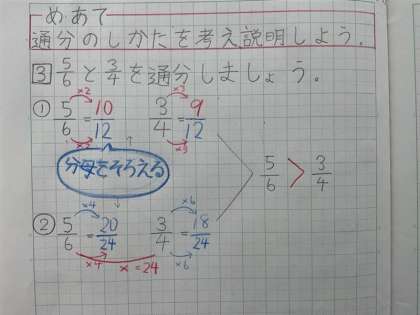 めあて
通分のしかたを考え説明しよう。
3 5/6と3/4を通分しましょう。
① 5/6 ×2 = 10/12 ×2 3/4 ×3 = 9/12 ×3
分母をそろえる
5/6 > 3/4
② 5/6 ×4 = 20/24 ×4 3/4 ×6 = 18/24 ×6
× = 24